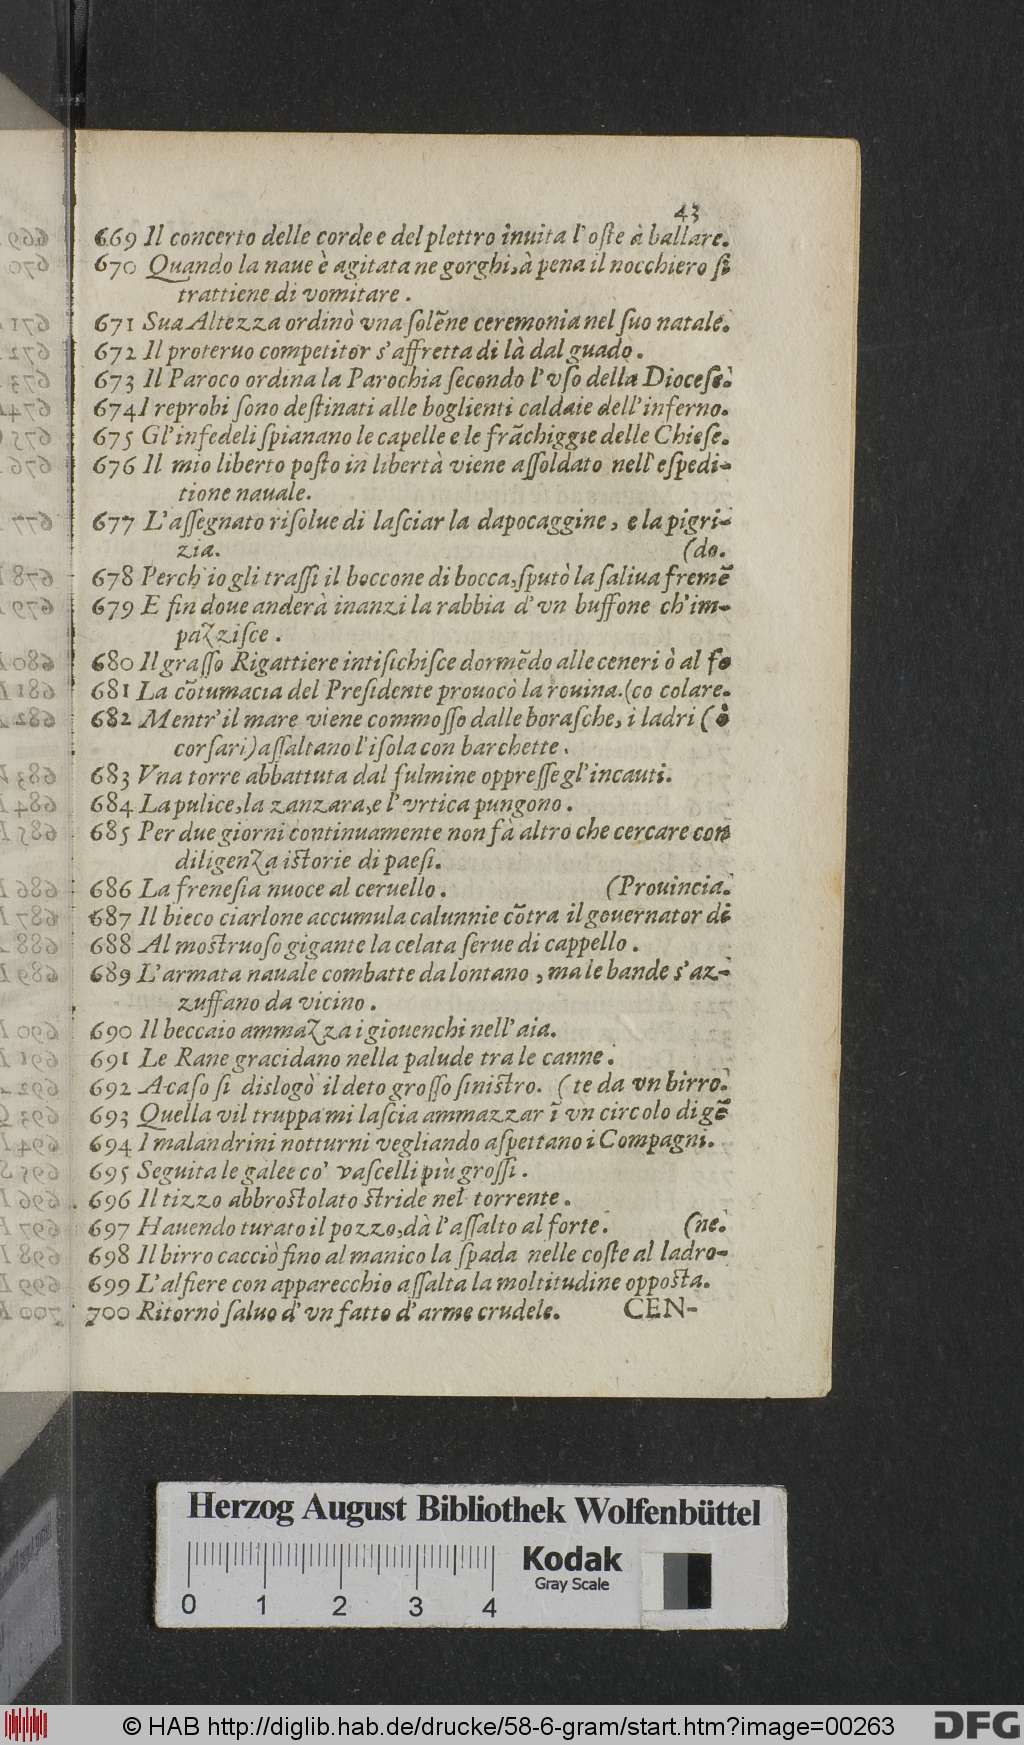 43
669 Il concerto delle corde e del plettro inuita l'oſte à ballare.
670 Quando la naue è agitata ne gorghi, à pena il nocchiero ſi
trattiene di vomitare.
671 Sua Altezza ordinò vna ſolẽne ceremonia nel ſuo natale.
672 Il proteruo competitor s'affretta di là dal guado.
673 Il Paroco ordina la Parochia ſecondo l'vſo della Dioceſe.
674 I reprobi ſono deſtinati alle boglienti caldaie dell'inferno.
675 Gl'infedeli ſpianano le capelle e le frãchiggie delle Chieſe.
676 Il mio liberto poſto in libertà viene aſſoldato nell'eſpedi-
tione nauale.
677 L'aſſegnato riſolue di laſciar la dapocaggine, e la pigri-
zia. (do.
678 Perch'io gli traſſi il boccone di bocca, ſputò la ſaliua fremẽ
679 E fin doue anderà inanzi la rabbia d'vn buffone ch'im-
pazziſce.
680 Il graſſo Rigattiere intiſichiſce dormẽdo alle ceneri ò al fo
681 La cõtumacia del Preſidente prouocò la rouina. (co colare.
682 Mentr'il mare viene commoſſo dalle boraſche, i ladri (ò
corſari) aſſaltano l'iſola con barchette.
683 Vna torre abbattuta dal fulmine oppreſſe gl'incauti.
684 La pulice, la zanzara, e l'vrtica pungono.
685 Per due giorni continuamente non fà altro che cercare con
diligenza iſtorie di paeſi.
686 La freneſia nuoce al ceruello. (Prouincia.
687 Il bieco ciarlone accumula calunnie cõtra il gouernator di
688 Al moſtruoſo gigante la celata ſerue di cappello.
689 L'armata nauale combatte da lontano, ma le bande s'az-
zuffano da vicino.
690 Il beccaio ammazza i giouenchi nell'aia.
691 Le Rane gracidano nella palude tra le canne.
692 A caſo ſi dislogò il deto groſſo ſiniſtro. (te da vn birro.
693 Quella vil truppa mi laſcia ammazzar ĩ vn circolo di gẽ
694 I malandrini notturni vegliando aſpettano i Compagni.
695 Seguita le galee co' vaſcelli più groſſi.
696 Il tizzo abbroſtolato ſtride nel torrente.
697 Hauendo turato il pozzo, dà l'aſſalto al forte. (ne.
698 Il birro cacciò fino al manico la ſpada nelle coſte al ladro-
699 L'alfiere con apparecchio aſſalta la moltitudine oppoſta.
700 Ritornò ſaluo d'vn fatto d'arme crudele. CEN-
Herzog August Bibliothek Wolfenbüttel
Kodak
Gray Scale
0 1 2 3 4
© HAB http://diglib.hab.de/drucke/58-6-gram/start.htm?image=00263
DFG